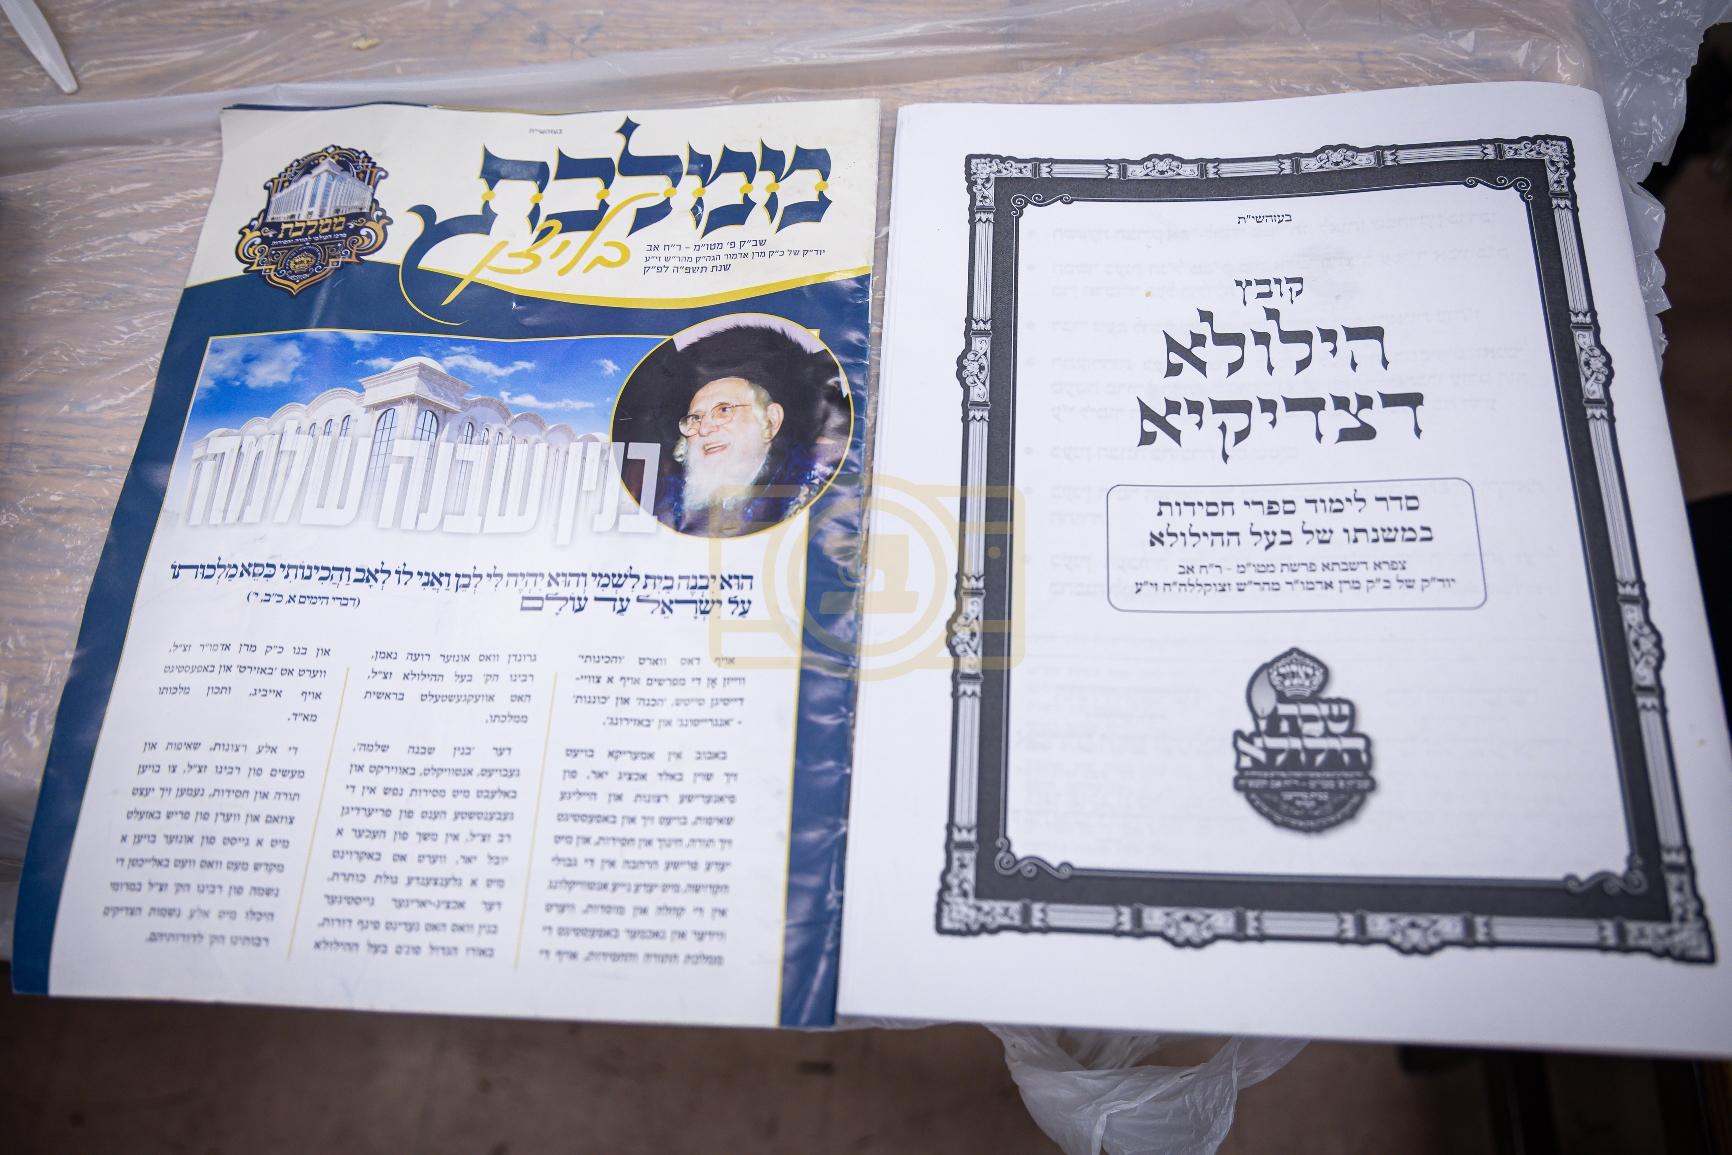 בעזהשי״ת
ממלכת
באיאן
ממלכת
שב״ק פ׳ מטו״מ - ר״ח אב
יוד״ק של כ״ק מרן אדמור הגה״ק מהר״ש זי״ע
שנת תשפ״ה לפ״ק
בנין שבנה שלמה
הוא יבנה בית לשמי והוא יהיה לי לבן ואני לו לאב והכינותי כסא מלכותו
על ישראל עד עולם
(דברי הימים א, כ״ב, י׳)
אויף דאס ווארט ׳והכינותי׳
ווייזן אן די מפרשים אויף א צוויי-
דייטיגן טייטש, ׳הכנה׳ און ׳כוננות׳
- ׳אנגרייטונג׳ און ׳באזירונג׳.
באבוב אין אמעריקא בויעט
זיך שוין באלד אכציג יאר, פון
פיאנערישע רצונות און הייליגע
שאיפות, בויעט זיך און באפעסטיגט
זיך תורה, חינוך און חסידות, און מיט
יעדע פרישע הרחבה אין די גבולי
הקדושה, מיט יעדע נייע אנטוויקלונג
אין די קהלה און מוסדות, ווערט
ווידער און נאכמער באפעסטיגט די
ממלכת התורה והחסידות, אויף די
גרונדן וואס אונזער רועה נאמן,
רבינו הק׳ בעל ההילולא זצ״ל,
האט אוועקגעשטעלט בראשית
ממלכתו.
דער ׳בנין שבנה שלמה׳,
געבויעט, אנטוויקלט, באווירקט און
באלעבט מיט מסירות נפש אין די
געבענטשטע הענט פון פריערדיגן
רב זצ״ל, אין משך פון העכער א
יובל יאר, ווערט אט באקרוינט
מיט א גלענצענדע גולת כותרת,
דער אכציג-יאריגער גייסטיגער
בנין וואס האט געדינט פינף דורות,
באורו הגדול פונ׳ם בעל ההילולא
און בנו כ״ק מרן אדמו״ר זצ״ל,
ווערט אט ׳באזירט׳ און באפעסטיגט
אויף אייביג, ותכון מלכותו
מא״ד.
די אלע רצונות, שאיפות און
מעשים פון רבינו זצ״ל, צו בויען
תורה און חסידות, נעמען זיך יעצט
צוזאם און ווערן פון פריש באזעלט
מיט א גייסט פון אונזער בויען א
מקדש מעט וואס וועט באלייכטן די
נשמה פון רבינו הק׳ זצ״ל במרומי
היכלו מיט אלע נשמות הצדיקים
רבותינו הק׳ לדורותיהם.
בעזהשי״ת
קובץ
הילולא
דצדיקיא
סדר לימוד ספרי חסידות
במשנתו של בעל ההילולא
צפרא דשבתא פרשת מטו״מ - ר״ח אב
יוד״ק של כ״ק מרן אדמו״ר מהר״ש זצוקללה״ה זי״ע
שבת
הילולא